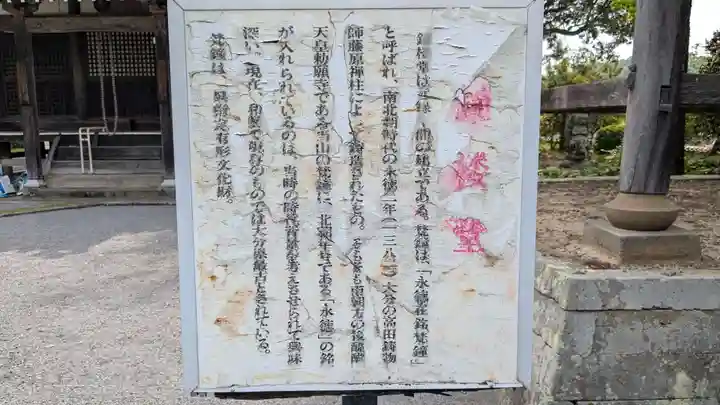 鐘楼堂
鐘楼堂は元禄 間の建立である。梵鐘は、「永徳在銘梵鐘」
と呼ばれ、南北朝時代の永徳二年(一三八二)大分の高田鋳物
師藤原禅柱によ 鋳造されたもの。そもそも南朝方の後醍醐
天皇勅願寺である当山の梵鐘に、北朝年号である「永徳」の銘
が入れられているのは、当時の時代背景を考えさせられて興味
深い。現在、和鐘で現存のものでは大分県最古とされている。
梵鐘は、県指定有形文化財。